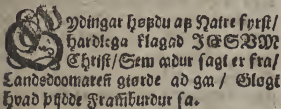 GYdingar høfdu aff Natre fyrst/
hardlega klagad JESVM
Christ/ Sem adur sagt er fra/
Landsdoomareñ giørde ad gaa/ Gløgt
hvad þijdde Fram̃burdur sa.